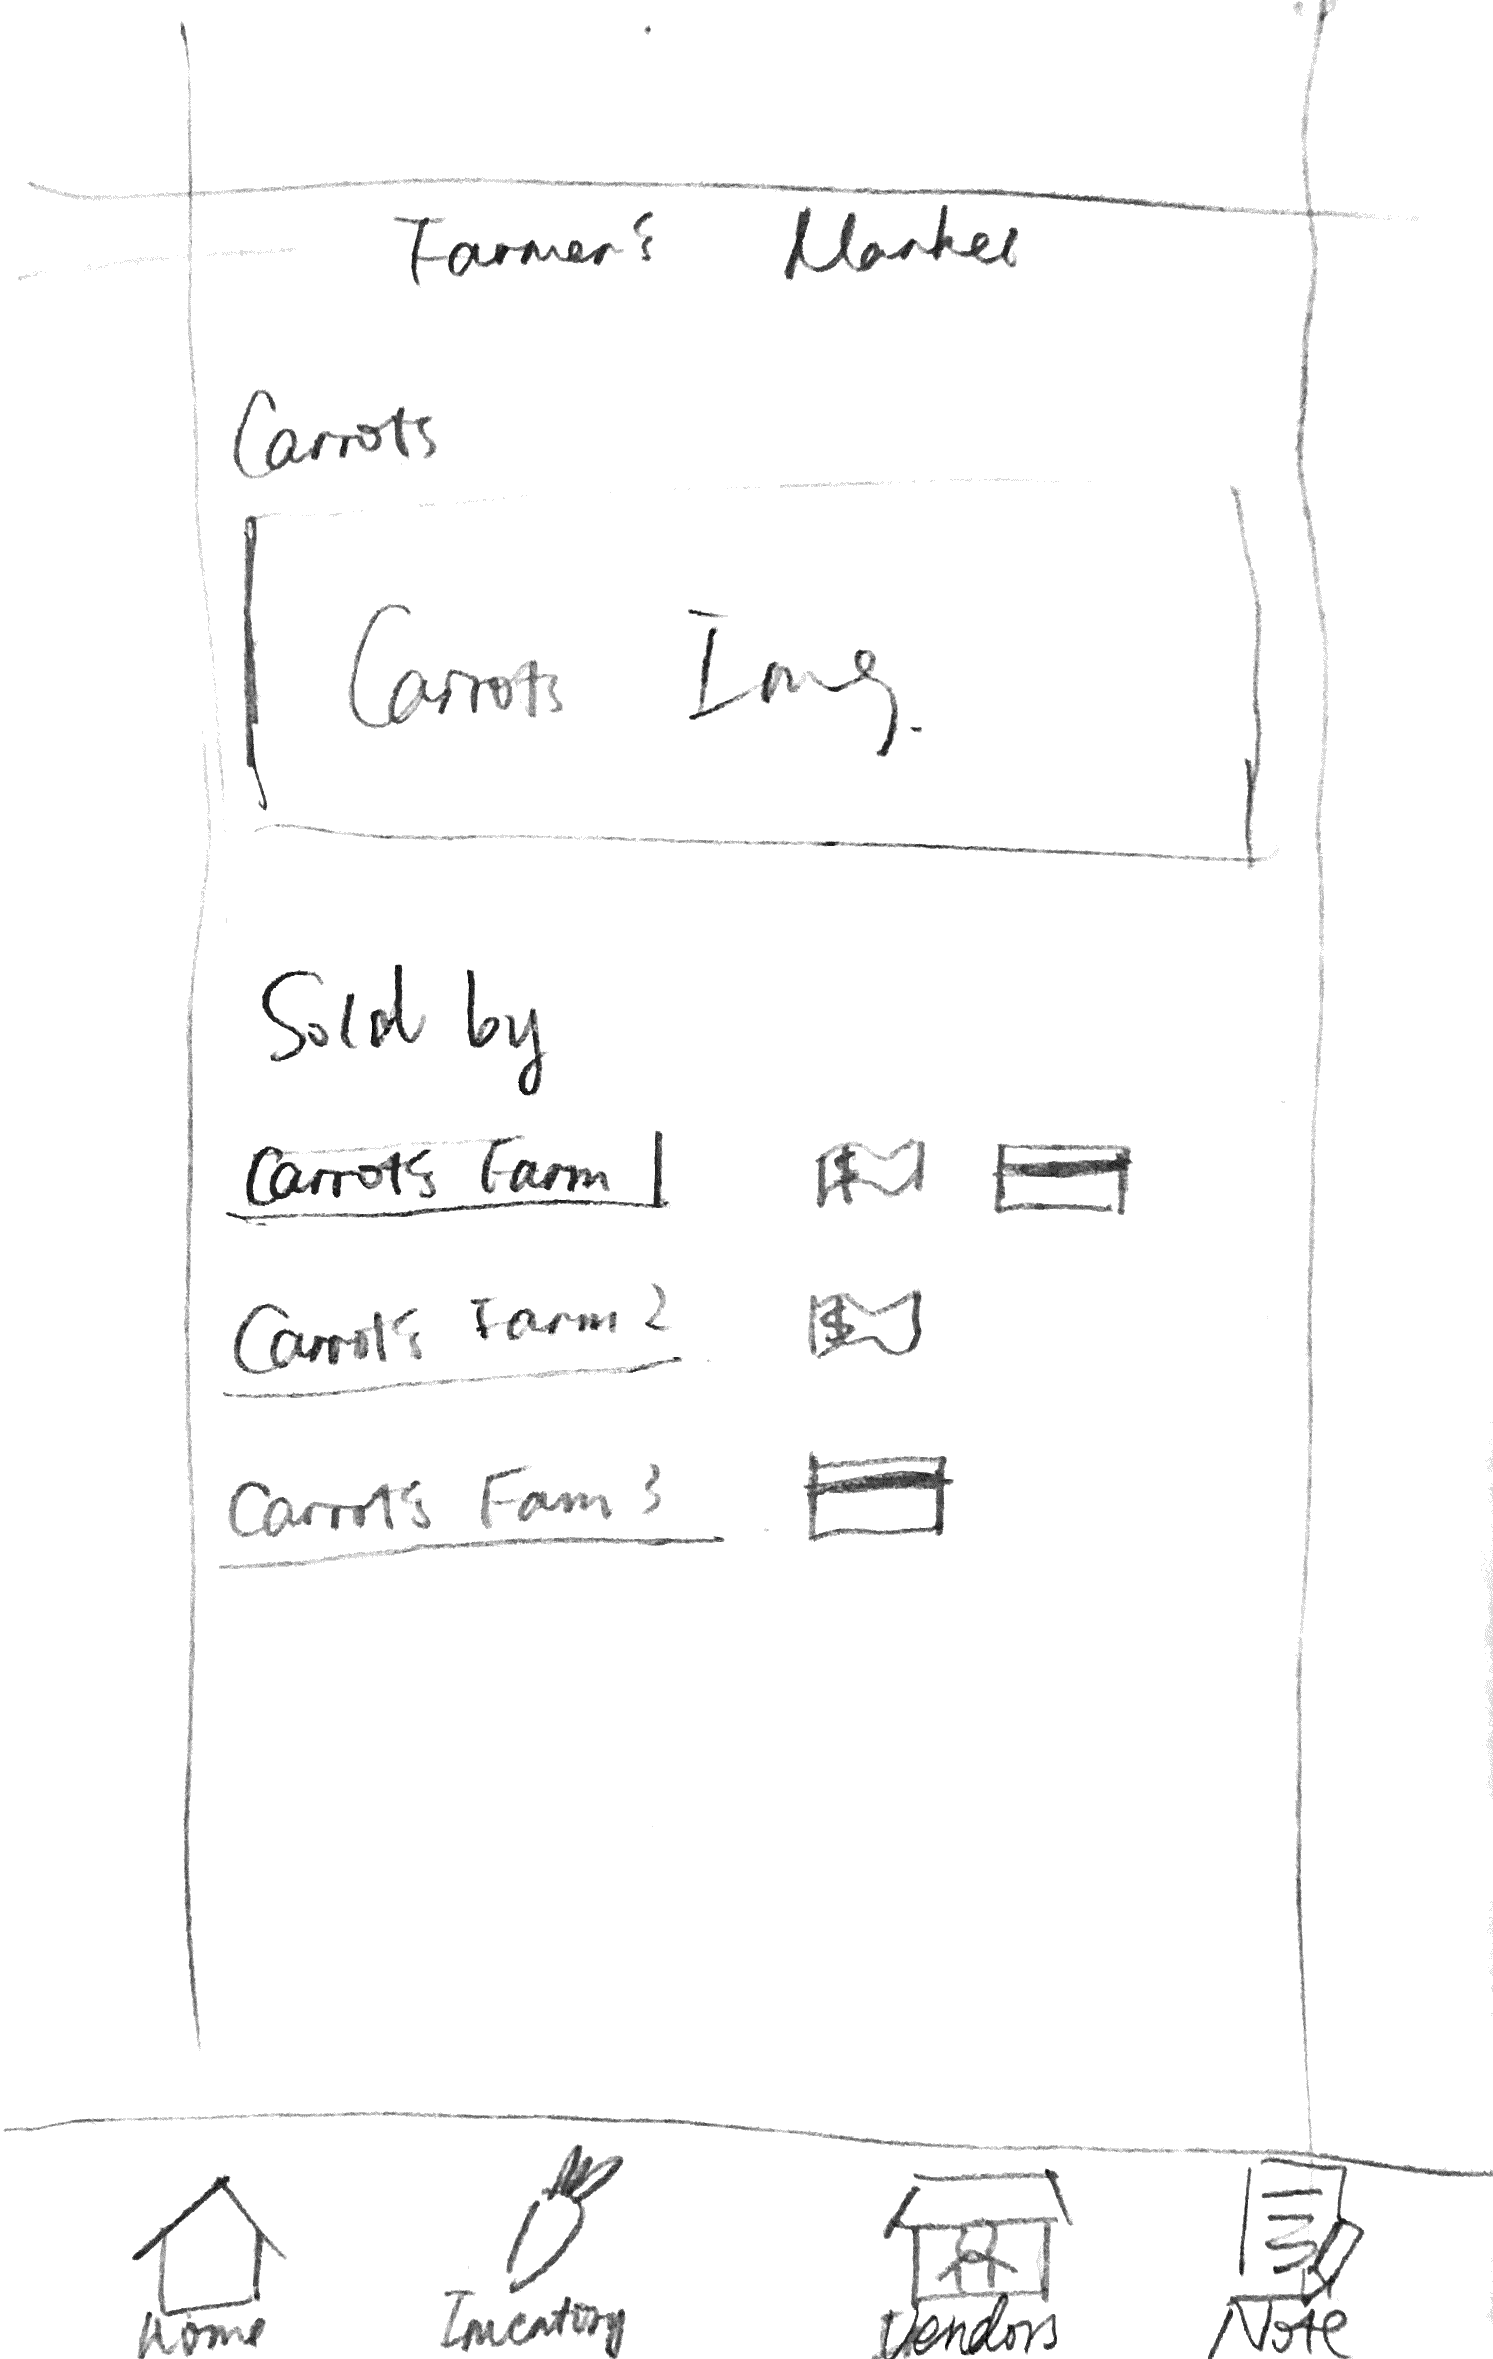 Farmer's Market
Carrots
Carrots Img.
Sold by
Carrots Farm 1
Carrots Farm 2
Carrots Farm 3
Home Inventory Vendors Note